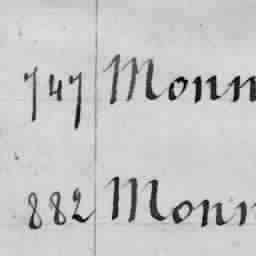 747 Monn
882 Monn